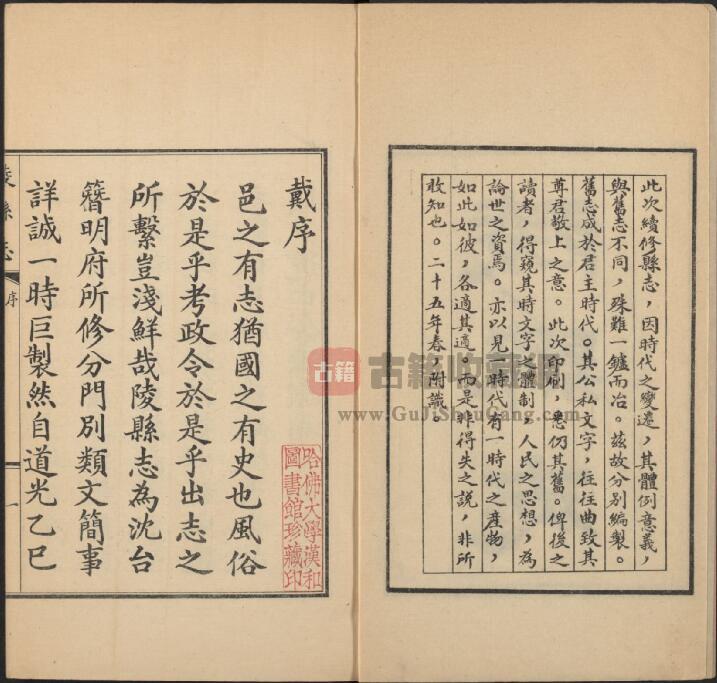 此次續修縣志，因時代之變遷，其體例意義，
與舊志不同，殊難一鑪而冶。茲故分別編製。
舊志成於君主時代。其公私文字，往往曲致其
尊君敬上之意。此次印刷，悉仍其舊。俾後之
讀者，得窺其時文字之體制，人民之思想，為
論世之資焉。亦以見一時代有一時代之產物，
如此如彼，各適其適。而是非得失之說，非所
敢知也。二十五年春，附識
戴序
邑之有志猶國之有史也風俗
於是乎考政令於是乎出志之
所繫豈淺鮮哉陵縣志為沈台
簪明府所修分門別類文簡事
詳誠一時巨製然自道光乙巳
陵縣志
序
一
哈佛大學漢和
圖書館珍藏印
古籍
古籍收藏網
www.GuJiShouCang.com